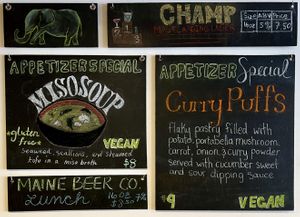 CHAMP
Special ABV Price
5% 7.50
APPETIZER SPECIAL
MISO SOUP
gluten
free
VEGAN
seaweed, scallions, and steamed
tofu in a miso broth
$8
MAINE BEER CO.
Lunch
7%
APPETIZER Special
Curry Puffs
flaky pastry filled with
potato, portabella mushroom,
carrot, onion, & curry powder
served with cucumber sweet
and sour dipping sauce
$9
VEGAN